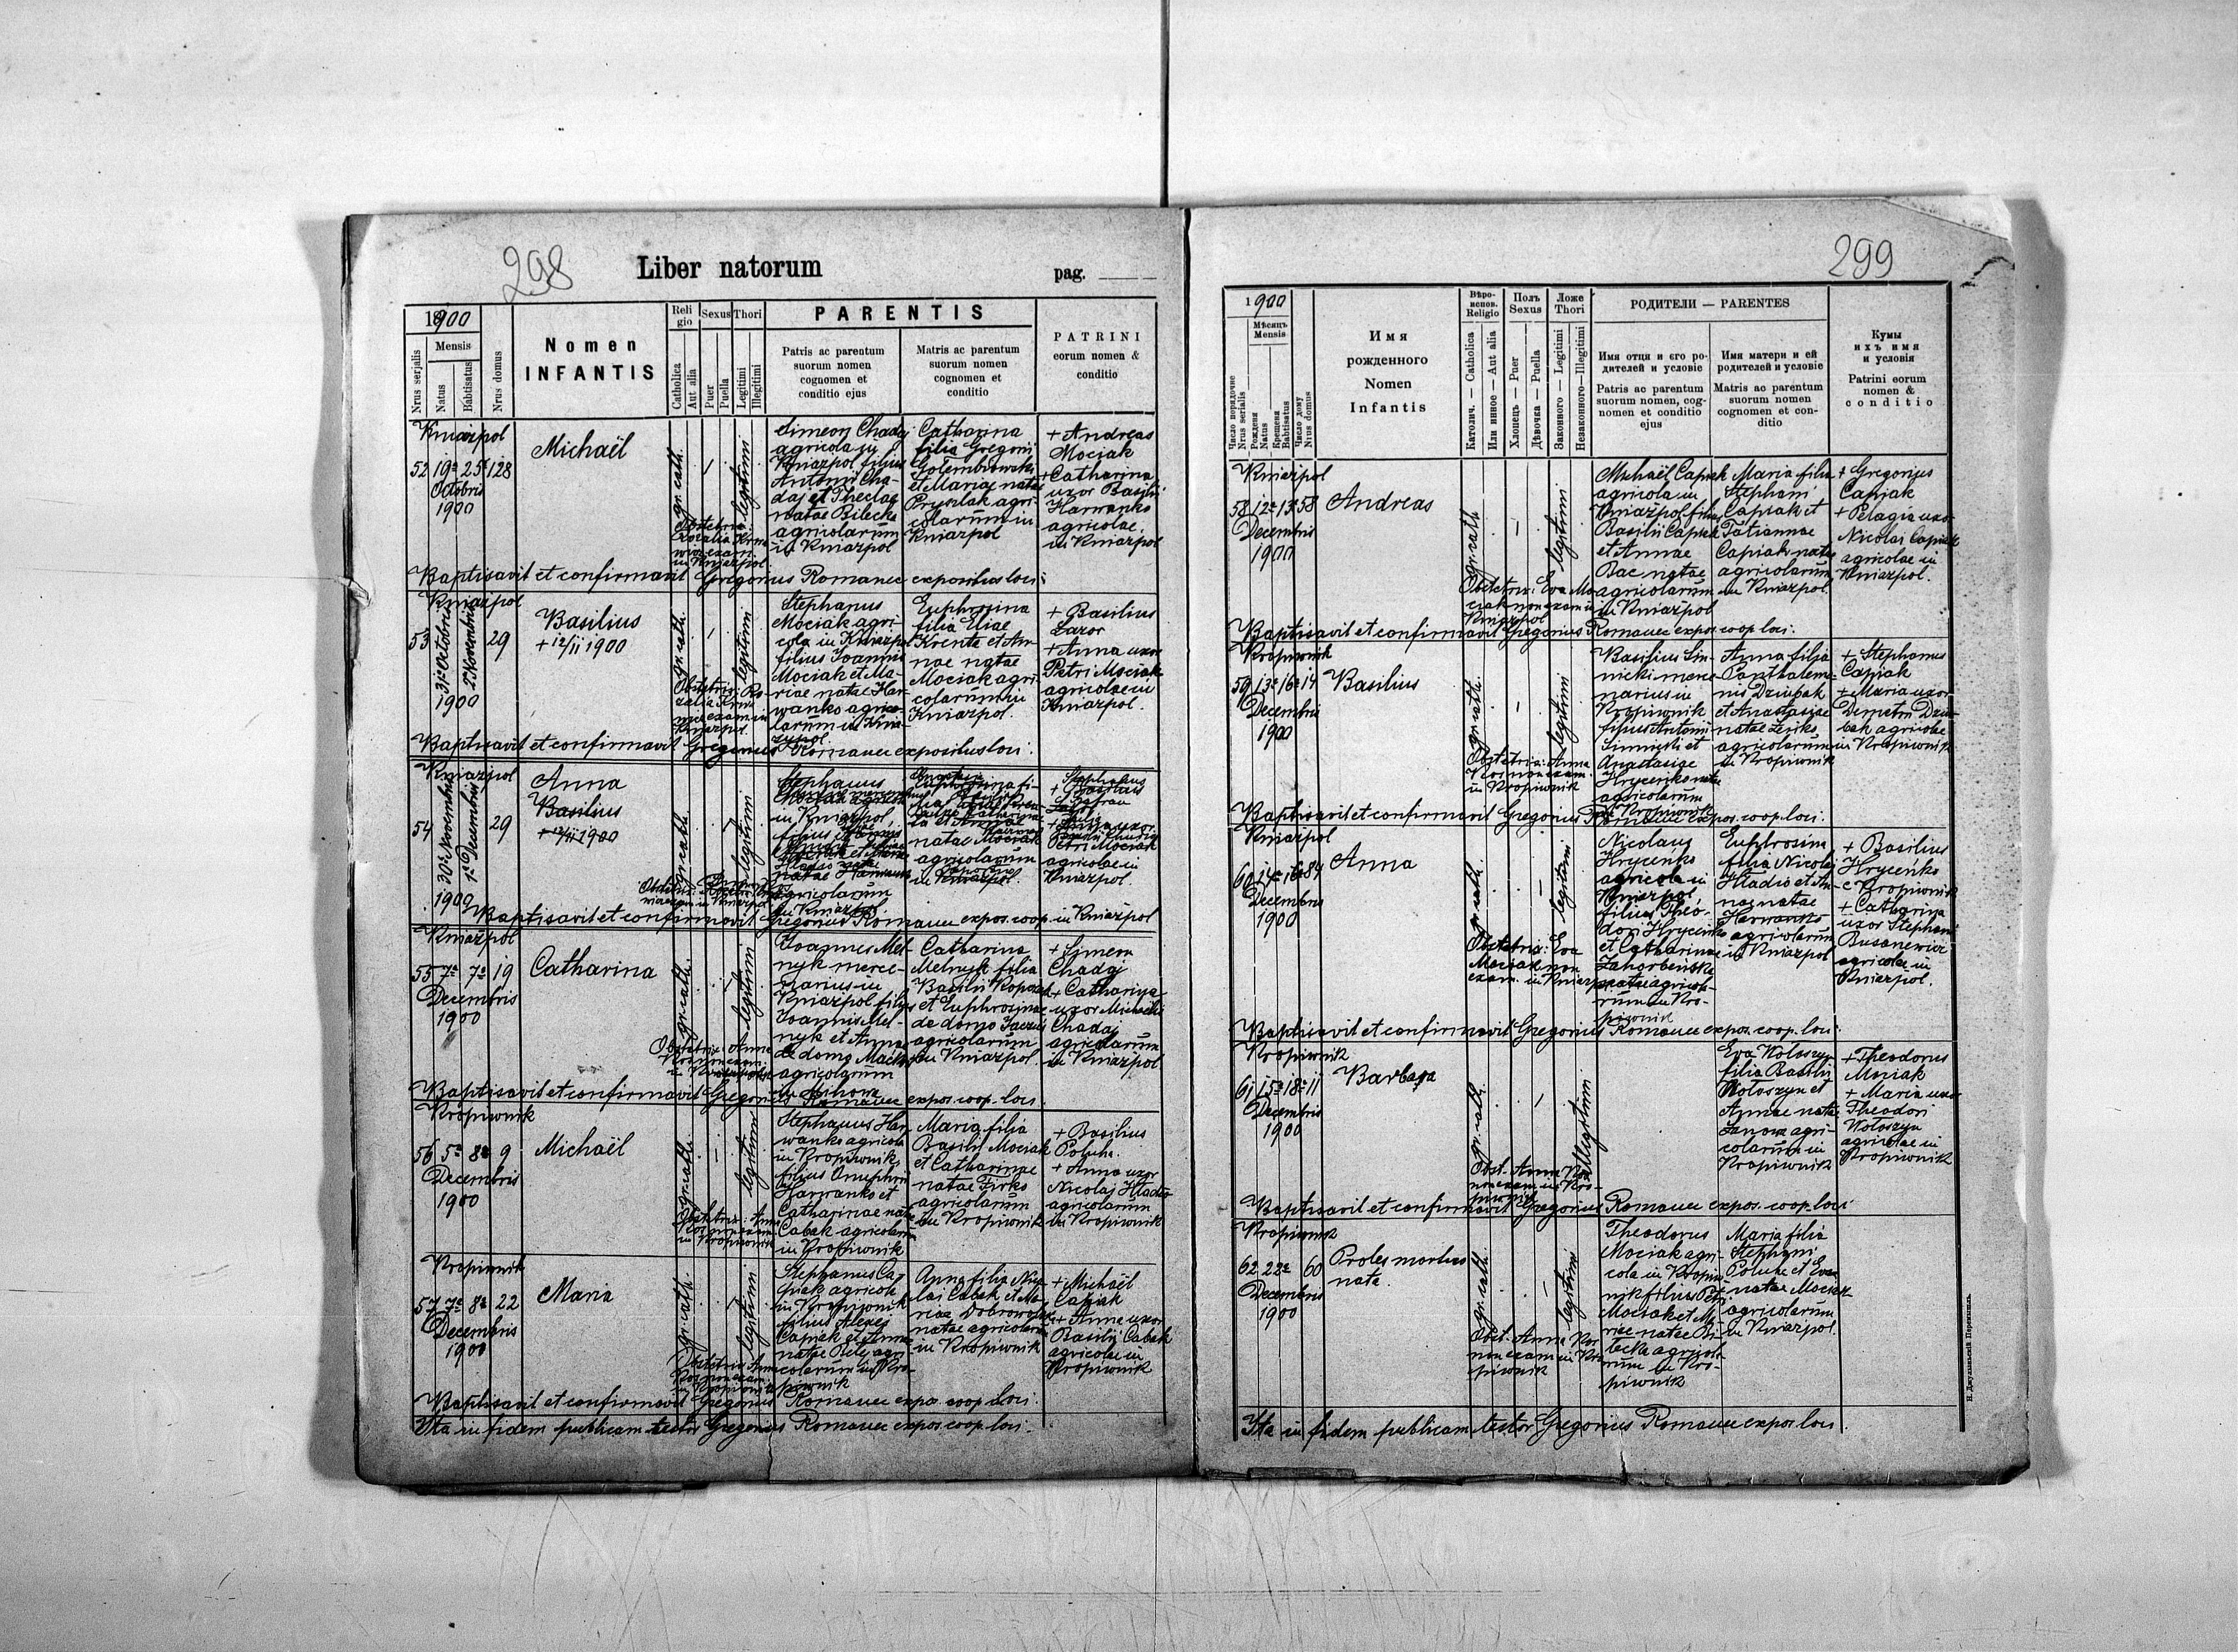 298
Liber natorum
pag.
1900
Mensis
Nrus serjalis
Natus
Babtisatus
Nrus domus
Nomen
INFANTIS
Religio
Catholica
Aut alia
Sexus
Puer
Puella
Thori
Legitimi
Illegitimi
PARENTIS
Patris ac parentum
suorum nomen
cognomen et
conditio ejus
Matris ac parentum
suorum nomen
cognomen et
conditio
PATRINI
eorum nomen &
conditio
Kniażpol
52 19a 25a 128
Octobris
1900
Michaël
gr. cath.
legitimi
Obstetrix
in Kniażpol
Simeon Chadaj
agricola in
Kniażpol filius
Antonii Cha-
daj et Theclae
natae Bilecka
agricolarum
in Kniażpol
Catharina
filia Gregorii
et Mariae natae
agri-
colarum in
Kniażpol
+ Andreas
Mociak
+ Catharina
uxor Basilii
Harwanko
agricolae
in Kniażpol
Baptisavit et confirmavit Gregorius Romanec expositus loci.
Kniażpol
53 31a Octobris 2a Novembris 29
1900
Basilius
+ 12/11 1900
gr. cath.
legitimi
Stephanus
Mociak agri-
cola in Kniażpol
filius Joannis
Mociak et Ma-
riae natae Har-
wanko agrico-
larum in Knia-
żpol
Euphrosina
filia Eliae
et An-
nae natae
Mociak agri-
colarum in
Kniażpol.
+ Basilius
Lazor
+ Anna uxor
Petri Mociak
agricolae in
Kniażpol.
Baptisavit et confirmavit Gregorius Romanec expositus loci.
Kniażpol
54 30a Novembris 1a Decembris 29
1900
Anna
Basilius
+ 12/11 1900
gr. cath.
legitimi
Stephanus
in Kniażpol,
filius
agricolarum
in Kniażpol
natae Mociak
agricolarum
in Kniażpol.
Stephanus
Basilius
Petri Mociak
agricolae in
Kniażpol.
Baptisavit et confirmavit Gregorius Romanec expos. coop. in Kniażpol
Kniażpol
55 7a 7a 19
Decembris
1900
Catharina
gr. cath.
legitimi
Obstetrix: Anna
Joannes Mel-
nyk merce-
narius in
Kniażpol filius
Joannis Mel-
nyk et Annae
de domo
agricolarum
Catharina
Melnyk filia
Basilii
et Euphrosinae
de domo
agricolarum
in Kniażpol.
+ Simeon
Chadaj
+ Catharina
uxor Michaelis
Chadaj
agricolarum
in Kniażpol
Baptisavit et confirmavit Gregorius Romanec expos. coop. loci.
Kropiwnik
56 5a 8a 9
Decembris
1900
Michaël
gr. cath.
legitimi
Obstetrix: Anna
in Kropiwnik
Stephanus Har-
wanko agricola
in Kropiwnik,
filius Onuphrii
Harwanko et
Catharinae natae
Cabak agricolarum
in Kropiwnik
Maria filia
Basilii Mociak
et Catharinae
natae Firko
agricolarum
in Kropiwnik
+ Basilius
Poluha
+ Anna uxor
Nicolai Hladio
agricolarum
in Kropiwnik
Kropiwnik
57 7a 8a 22
Decembris
1900
Maria
gr. cath.
legitimi
Obstetrix Anna
Stephanus Ca-
piak agricola
in Kropiwnik
filius Alexij
Capiak et Annae
natae Bilej agri-
colarum in Kro-
piwnik
Anna filia Nico-
lai Cabak et Ma-
riae
natae agricolarum
in Kropiwnik
+ Michaël
Capiak
+ Anna uxor
Basilii Cabak
agricolae in
Kropiwnik
Baptisavit et confirmavit Gregorius Romanec expos. coop. loci.
Ita in fidem publicam testor Gregorius Romanec expos. coop. loci.
299
1900
Мѣсяць
Mensis
Число порядочне
Nrus serialis
Рожденя
Natus
Крещеня
Babtisatus
Число дому
Nrus domus
Имя
рожденного
Nomen
Infantis
Вѣро-
испов.
Religio
Католич. — Catholica
Или инное — Aut alia
Полъ
Sexus
Хлопець — Puer
Дѣвочка — Puella
Ложе
Thori
Законного — Legitimi
Незаконного — Illegitimi
РОДИТЕЛИ — PARENTES
Имя отця и єго ро-
дителей и условіе
Patris ac parentum
suorum nomen, cog-
nomen et conditio
ejus
Имя матери и ей
родителей и условіе
Matris ac parentum
suorum nomen
cognomen et con-
ditio
Кумы
ихъ имя
и условія
Patrini eorum
nomen &
conditio
Kniażpol
58 12a 13a 58
Decembris
1900
Andreas
gr. cath.
legitimi
Obstetrix: Eva Mo-
ciak non exam. in
Kniażpol
Michaël Capiak
agricola in
Kniażpol filius
Basilii Capiak
et Annae
Bac natae
agricolarum
in Kniażpol
Maria filia
Stephani
Capiak et
Tatiannae
Capiak natae
agricolarum
in Kniażpol.
+ Gregorius
Capiak
+ Pelagia uxor
Nicolai Capiak
agricolae in
Kniażpol.
Baptisavit et confirmavit Gregorius Romanec expos. coop. loci.
Kropiwnik
59 13a 16a 14
Decembris
1900
Basilius
gr. cath.
legitimi
Obstetrix: Anna
Kos non exam.
in Kropiwnik
Basilius Sin-
nicki merce-
narius in
Kropiwnik
filius Antonii
Sinnicki et
Anastasiae
Hrycenko natae
agricolarum
in Kropiwnik
Anna filia
Panthalemo-
nis Dziubak
et Anastasiae
natae
agricolarum
in Kropiwnik
+ Stephanus
Capiak
+ Maria uxor
Demetri Dziu-
bak agricolae
in Kropiwnik
Baptisavit et confirmavit Gregorius Romanec expos. coop. loci.
Kniażpol
60 14a 16a 84
Decembris
1900
Anna
gr. cath.
legitimi
Obstetrix: Eva
Mociak non
exam. in Kniażpol
Nicolaus
Hrycenko
agricola in
Kniażpol,
filius Theo-
dori Hrycenko
et Catharinae
natae agricola-
rum in Kro-
piwnik
Euphrosina
filia Nicolai
Hladio et An-
nae natae
Harwanko
agricolarum
in Kniażpol
+ Basilius
Hrycenko
e Kropiwnik
+ Catharina
uxor Stephani
Busanewicz
agricolae in
Kniażpol.
Baptisavit et confirmavit Gregorius Romanec expos. coop. loci.
Kropiwnik
61 15a 18a 11
Decembris
1900
Barbara
gr. cath.
illegitimi
Obst. Anna Kos
non exam. in Kro-
piwnik
Eva Wołoszyn
filia Basilii
Wołoszyn et
Annae natae
agri-
colarum in
Kropiwnik
+ Theodorus
Mociak
+ Maria uxor
Theodori
Wołoszyn
agricolae in
Kropiwnik
Baptisavit et confirmavit Gregorius Romanec expos. coop. loci
Kropiwnik
62 22a 60
Decembris
1900
Proles mortuo
nata.
gr. cath.
legitimi
Obst. Anna Kos
non exam. in Kro-
piwnik
Theodorus
Mociak agri-
cola in Kropiw-
nik filius Petri
Mociak et Ma-
riae natae Bi-
lecka agricola-
rum in Kro-
piwnik
Maria filia
Stephani
Poluha et Evae
natae Mociak
agricolarum
in Kniażpol.
Ita in fidem publicam testor Gregorius Romanec expos. loci.